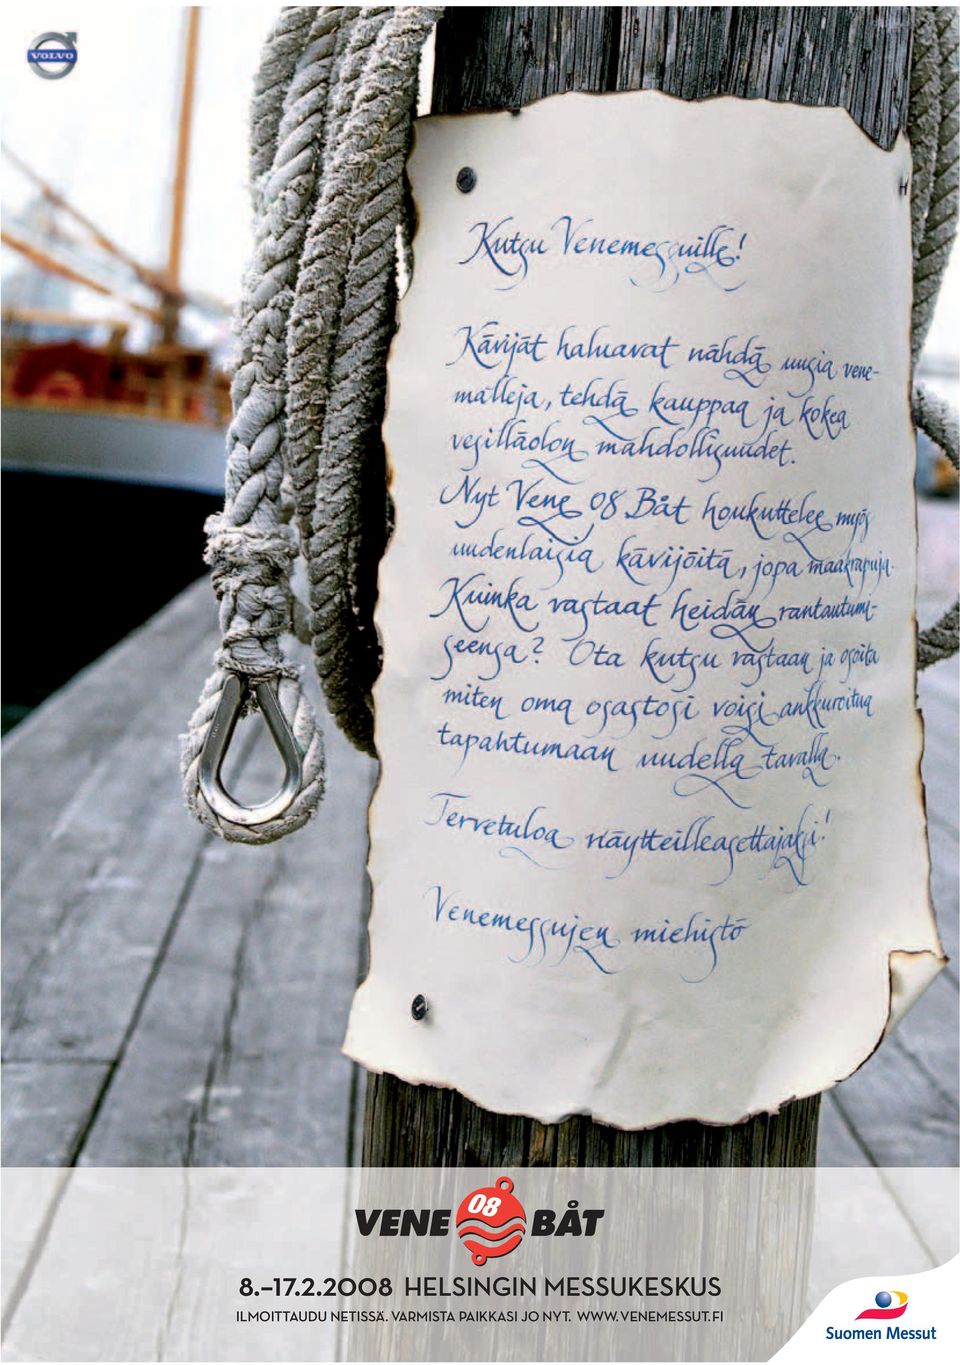 VOLVO
Kutsu Venemessuille!
Kävijät haluavat nähdä uusia vene-
malleja, tehdä kauppaa ja kokea
vesilläolon mahdollisuudet.
Nyt Vene 08 Båt houkuttelee myös
uudenlaisia kävijöitä, jopa maakrapuja.
Kuinka vastaat heidän rantautumi-
seensa? Ota kutsu vastaan ja osoita
miten oma osastosi voisi ankkuroitua
tapahtumaan uudella tavalla.
Tervetuloa näytteilleasettajaksi!
Venemessujen miehistö
VENE 08 BÅT
8.–17.2.2008 HELSINGIN MESSUKESKUS
ILMOITTAUDU NETISSÄ. VARMISTA PAIKKASI JO NYT. WWW.VENEMESSUT.FI
Suomen Messut